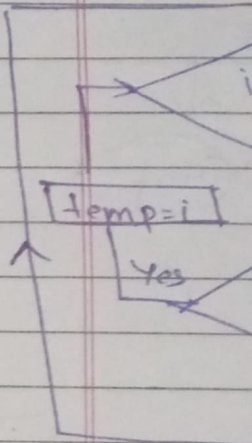 i
temp=i
Yes